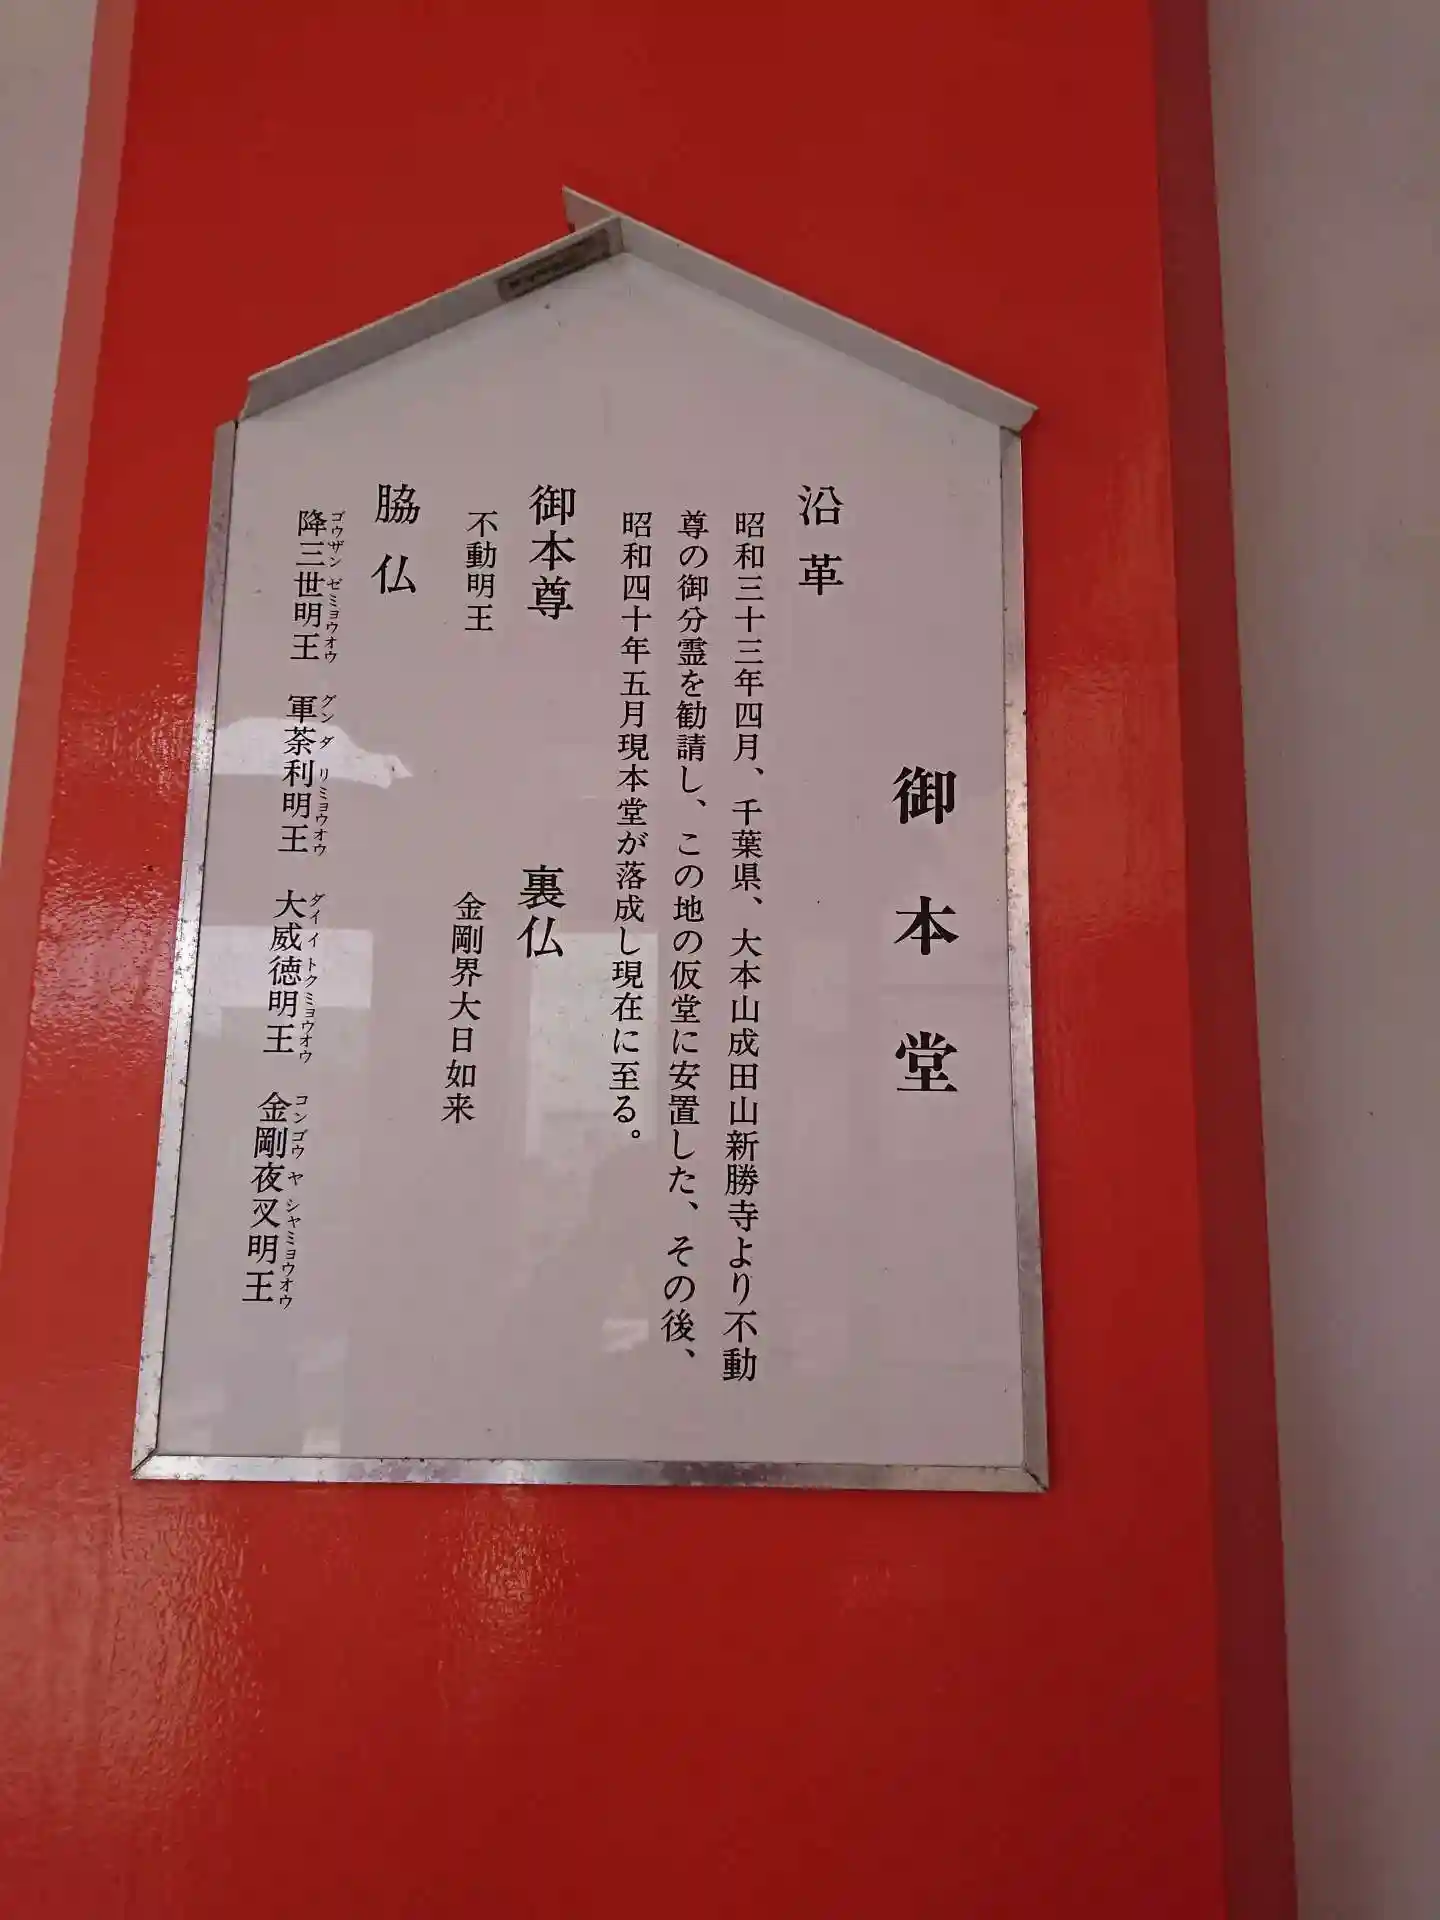 御本堂
沿革
昭和三十三年四月、千葉県、大本山成田山新勝寺より不動
尊の御分霊を勧請し、この地の仮堂に安置した、その後、
昭和四十年五月現本堂が落成し現在に至る。
御本尊
不動明王
裏仏
金剛界大日如来
脇仏
降三世明王
ゴウザンゼミョウオウ
軍荼利明王
グンダリミョウオウ
大威徳明王
ダイイトクミョウオウ
金剛夜叉明王
コンゴウヤシャミョウオウ